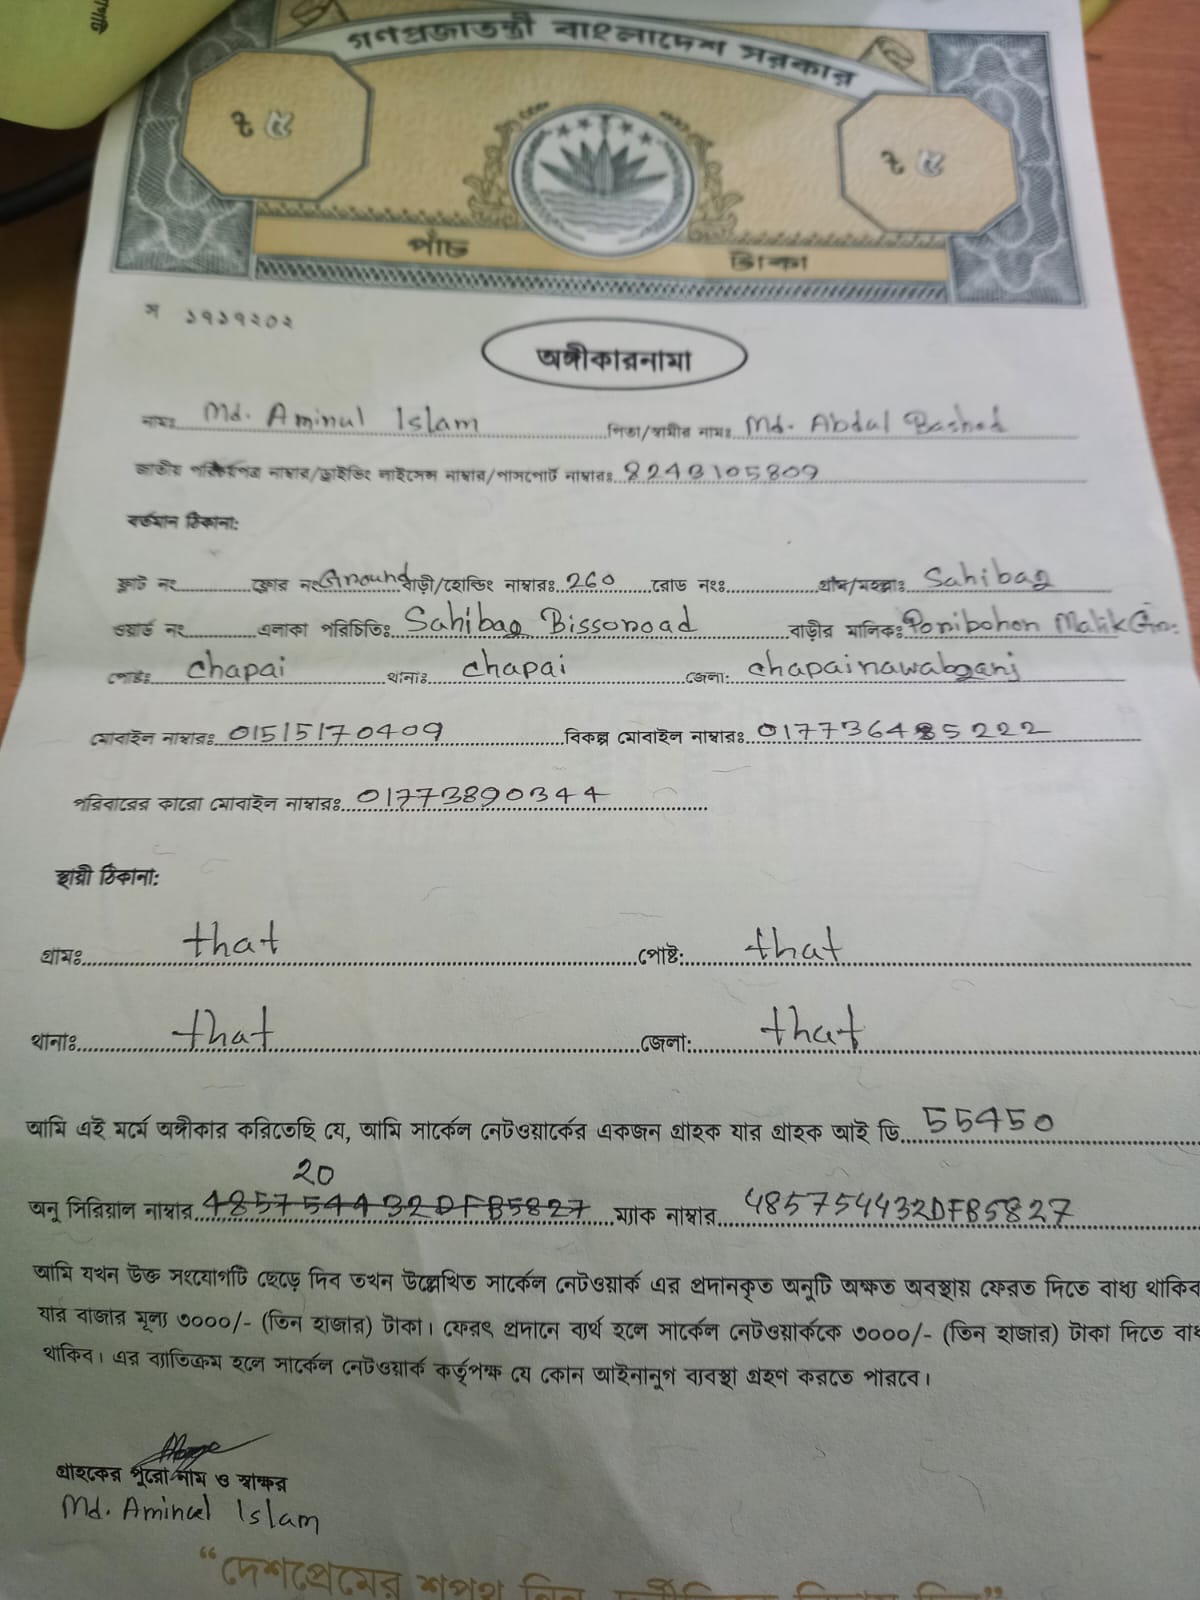 গণপ্রজাতন্ত্রী বাংলাদেশ সরকার
৳ ৫ ৳ ৫
পাঁচ টাকা
স ১৭১৭২০২
অঙ্গীকারনামা
নামঃ Md. Aminul Islam পিতা/স্বামীর নামঃ Md. Abdul Bashed
জাতীয় পরিচয়পত্র নাম্বার/ড্রাইভিং লাইসেন্স নাম্বার/পাসপোর্ট নাম্বারঃ 8243105809
বর্তমান ঠিকানা:
ফ্লাট নং ফ্লোর নং Ground বাড়ী/হোল্ডিং নাম্বারঃ 260 রোড নংঃ গ্রাম/মহল্লাঃ Sahibag
ওয়ার্ড নং এলাকা পরিচিতিঃ Sahibag Bissoroad বাড়ীর মালিক: Poribohon Malik Gro:
পোষ্টঃ chapai থানাঃ chapai জেলা: chapainawabganj
মোবাইল নাম্বারঃ 01515170409 বিকল্প মোবাইল নাম্বারঃ
পরিবারের কারো মোবাইল নাম্বারঃ 01773890344
স্থায়ী ঠিকানা:
গ্রামঃ that পোষ্ট: that
থানাঃ that জেলা: that
আমি এই মর্মে অঙ্গীকার করিতেছি যে, আমি সার্কেল নেটওয়ার্কের একজন গ্রাহক যার গ্রাহক আই ডি 55450
20
অনু সিরিয়াল নাম্বার 485754432DFB5827 ম্যাক নাম্বার 485754432DFB5827
আমি যখন উক্ত সংযোগটি ছেড়ে দিব তখন উল্লেখিত সার্কেল নেটওয়ার্ক এর প্রদানকৃত অনুটি অক্ষত অবস্থায় ফেরত দিতে বাধ্য থাকিব
যার বাজার মূল্য ৩০০০/- (তিন হাজার) টাকা। ফেরৎ প্রদানে ব্যর্থ হলে সার্কেল নেটওয়ার্ককে ৩০০০/- (তিন হাজার) টাকা দিতে বাধ
থাকিব। এর ব্যাতিক্রম হলে সার্কেল নেটওয়ার্ক কর্তৃপক্ষ যে কোন আইনানুগ ব্যবস্থা গ্রহণ করতে পারবে।
গ্রাহকের পুরো নাম ও স্বাক্ষর
Md. Aminul Islam
“দেশপ্রেমের শপথ নিন,